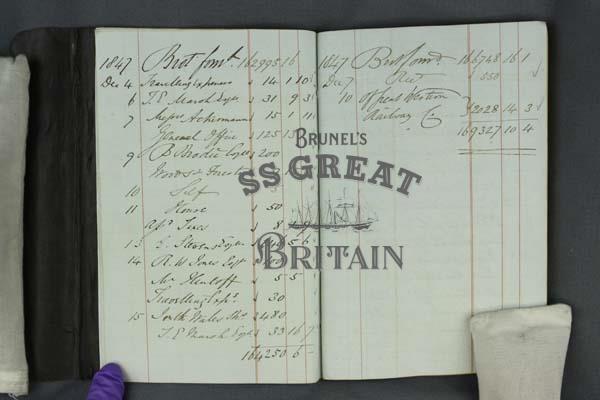 1847 Brot forwd. 162995 16
Dec 4 Travelling Expenses 14 1 10
6 T. E. Marsh Esqre 31 9 3
7 Messrs Ackermann 15 1 11
General Office 125 13
9 B Brodie Esqre 200
10 Self
11 House 50
Taxes 8
13
14 R. W. Jones Esqr
Mr 5 5
Travelling Exps. 30
15 South Wales 2480
T. E. Marsh Esqre 33 16 7
164250 6
1847 Brot forwd 166748 16 1
Dec 7 550
10 Great Western
Railway Co. 2028 14 3
169327 10 4
BRUNEL'S
SS GREAT
BRITAIN